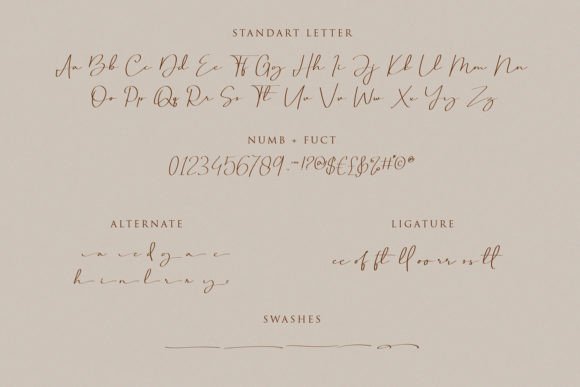 STANDART LETTER
Aa Bb Cc Dd Ee Ff Gg Hh Ii Jj Kk Ll Mm Nn
Oo Pp Qq Rr Ss Tt Uu Vv Ww Xx Yy Zz
NUMB + FUCT
0123456789.,-!?@$€£&%#*©®
ALTERNATE
LIGATURE
a u e d g a e
h i n d r n y s
ee of ft ll oo rr ss tt
SWASHES